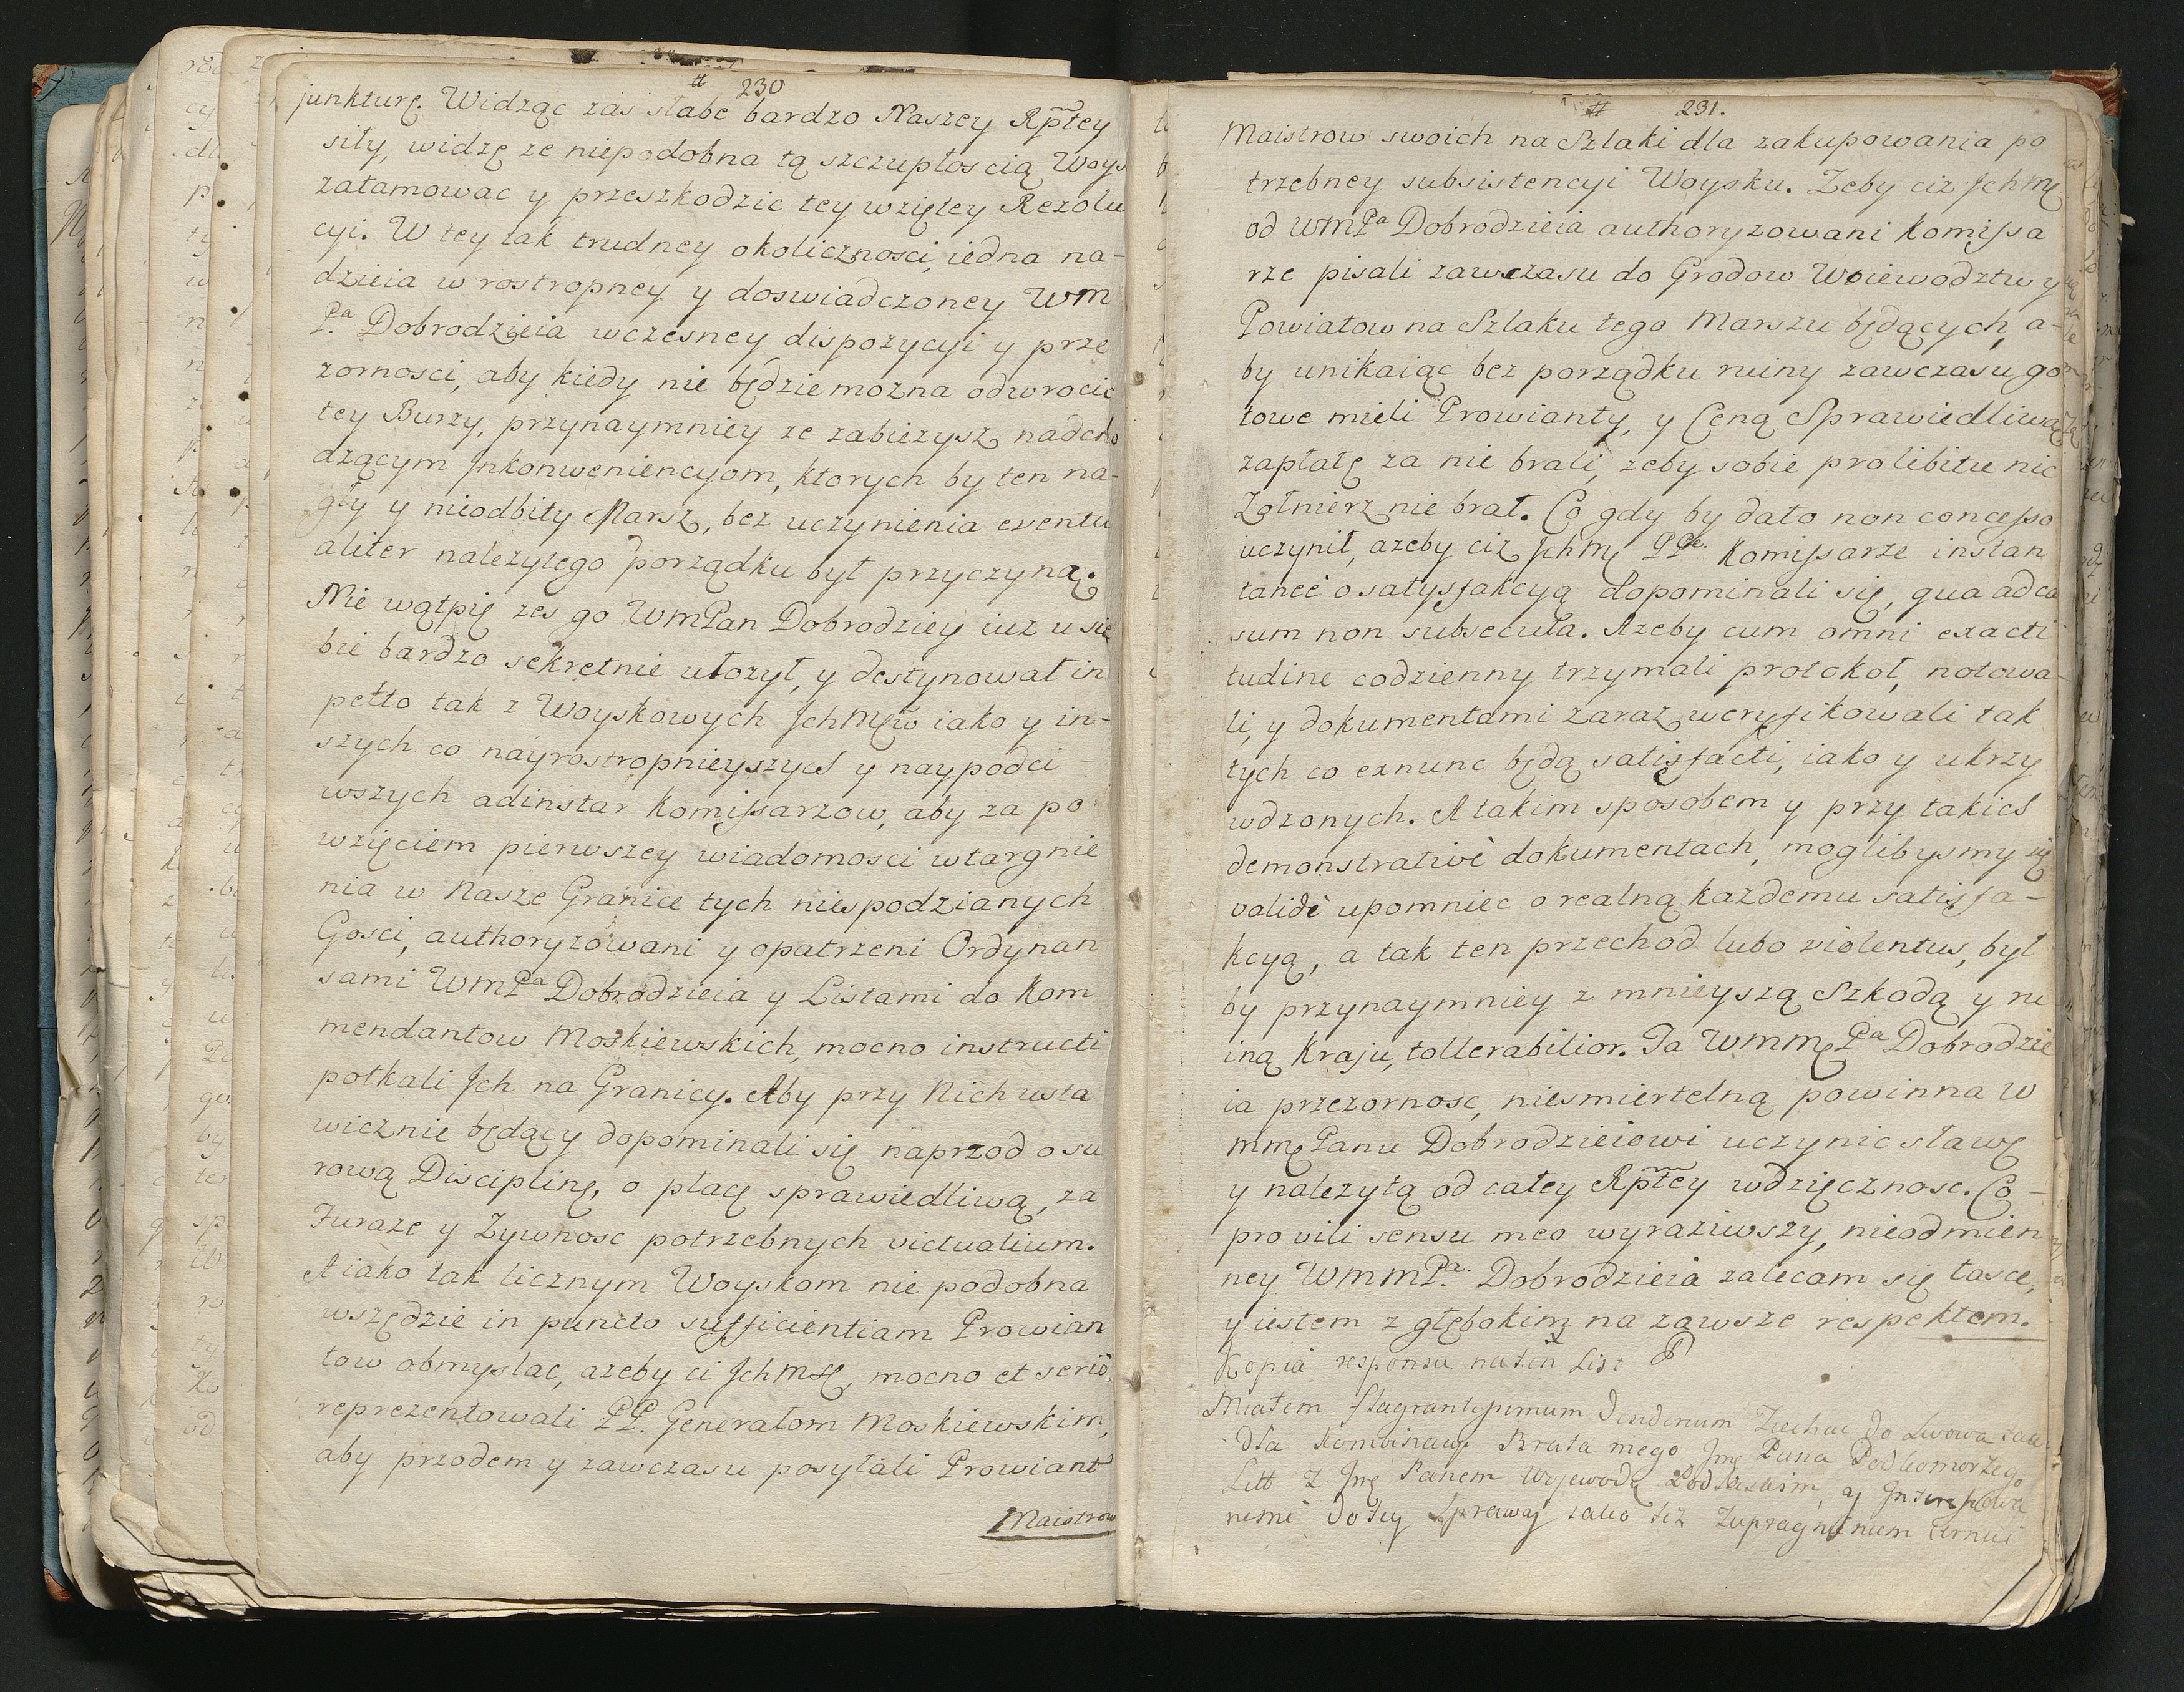 # 230
junkturę. Widząc zas słabe bardzo Naszey Rpłtey
siły, widzę ze niepodobna tą szczupłoscią Woys
zatamowac y przeszkodzic tey wziętey Rezolu
cyi. W tey tak trudney okolicznosci, iedna na-
dzieia w rostropney y doswiadczoney WM
P.a Dobrodzieia wczesney dispozycyi y prze
zornosci, aby kiedy nie będzie mozna odwrocic
tey Burzy, przynaymniey ze zabiezysz nadcho
dzącym Jnkonweniencyom, ktorych by ten na-
gły y nieodbity Marsz, bez uczynienia eventu
aliter nalezytego porządku był przyczyną.
Nie wątpię zes go WMPan Dobrodziey iuz u sie
bie bardzo sekretnie ułozył, y destynował in
petto tak z Woyskowych JchMęw iako y in-
szych co nayrostropnieyszych y naypodci
wszych adinstar Komissarzow, aby za po
wzięciem pierwszey wiadomosci wtargnie
nia w Nasze Granice tych niespodzianych
Gosci, authoryzowani y opatrzeni Ordynan
sami WMPa Dobrodzieia y Listami do Kom
mendantow Moskiewskich, mocno instructi
potkali Jch na Granicy. Aby przy Nich usta
wicznie będący dopominali się naprzod o su
rową Disciplinę, o płacę sprawiedliwą, za
Furaze y Zywnosc potrzebnych victualium.
A iako tak licznym Woyskom nie podobna
wszędzie in puncto sufficientiam Prowian
tow obmyslac, azeby ci JchMsę, mocno et serio
reprezentowali PP. Generałom Moskiewskim,
aby przodem y zawczasu posyłali Prowiant
Maistrow
# 231.
Maistrow swoich na Szlaki dla zakupowania po
trzebney subsistencyi Woysku. Zeby ciz JchMę
od WMPa Dobrodzieia authoryzowani Komissa
rze pisali zawczasu do Grodow Woiewodztw y
Powiatow na Szlaku tego Marszu będących, a-
by unikaiąc bez porządku ruiny zawczasu go
towe mieli Prowianty, y Ceną Sprawiedliwą
zapłatę za nie brali, zeby sobie prolibitu nic
Zołnierz nie brał. Co gdy by dato non concesso
uczynił, azeby ciz JchMę PPe. Komissarze instan
taneè o satysfakcyą dopominali się, qua ad ca
sum non subsecuta. Azeby cum omni exacti
tudine codzienny trzymali protokoł, notowa-
li, y dokumentami zaraz weryfikowali tak
tych co exnunc będą satisfacti, iako y ukrzy
wdzonych. A takim sposobem y przy takich
demonstrativè dokumentach, moglibysmy się
validè upomniec o realną kazdemu satisfa-
kcyą, a tak ten przechod lubo violentus, był
by przynaymniey z mnieyszą Szkodą y ru
iną Kraju, tollerabilior. Ta WMMęPa Dobrodzie
ia przezornosc, niesmiertelną powinna W
MMęPanu Dobrodzieiowi uczynic sławę
y nalezytą od całey Rpłtey wdzięcznosc. Co-
pro vili sensu meo wyraziwszy, nieodmien
ney WMMPa. Dobrodzieia zalecam się łasce,
y iestem z głębokim na zawsze respektem.
Kopia responsu na ten List
Miałem flagrantissimum desiderium Ziechac do Lwowa
dla Kombinacyi Brata mego Jmę Pana Podkomorzego
Litt z Jmę Panem Wojewodą Podlaskim, y
do tey Sprawy iako tez Zupragnieniem